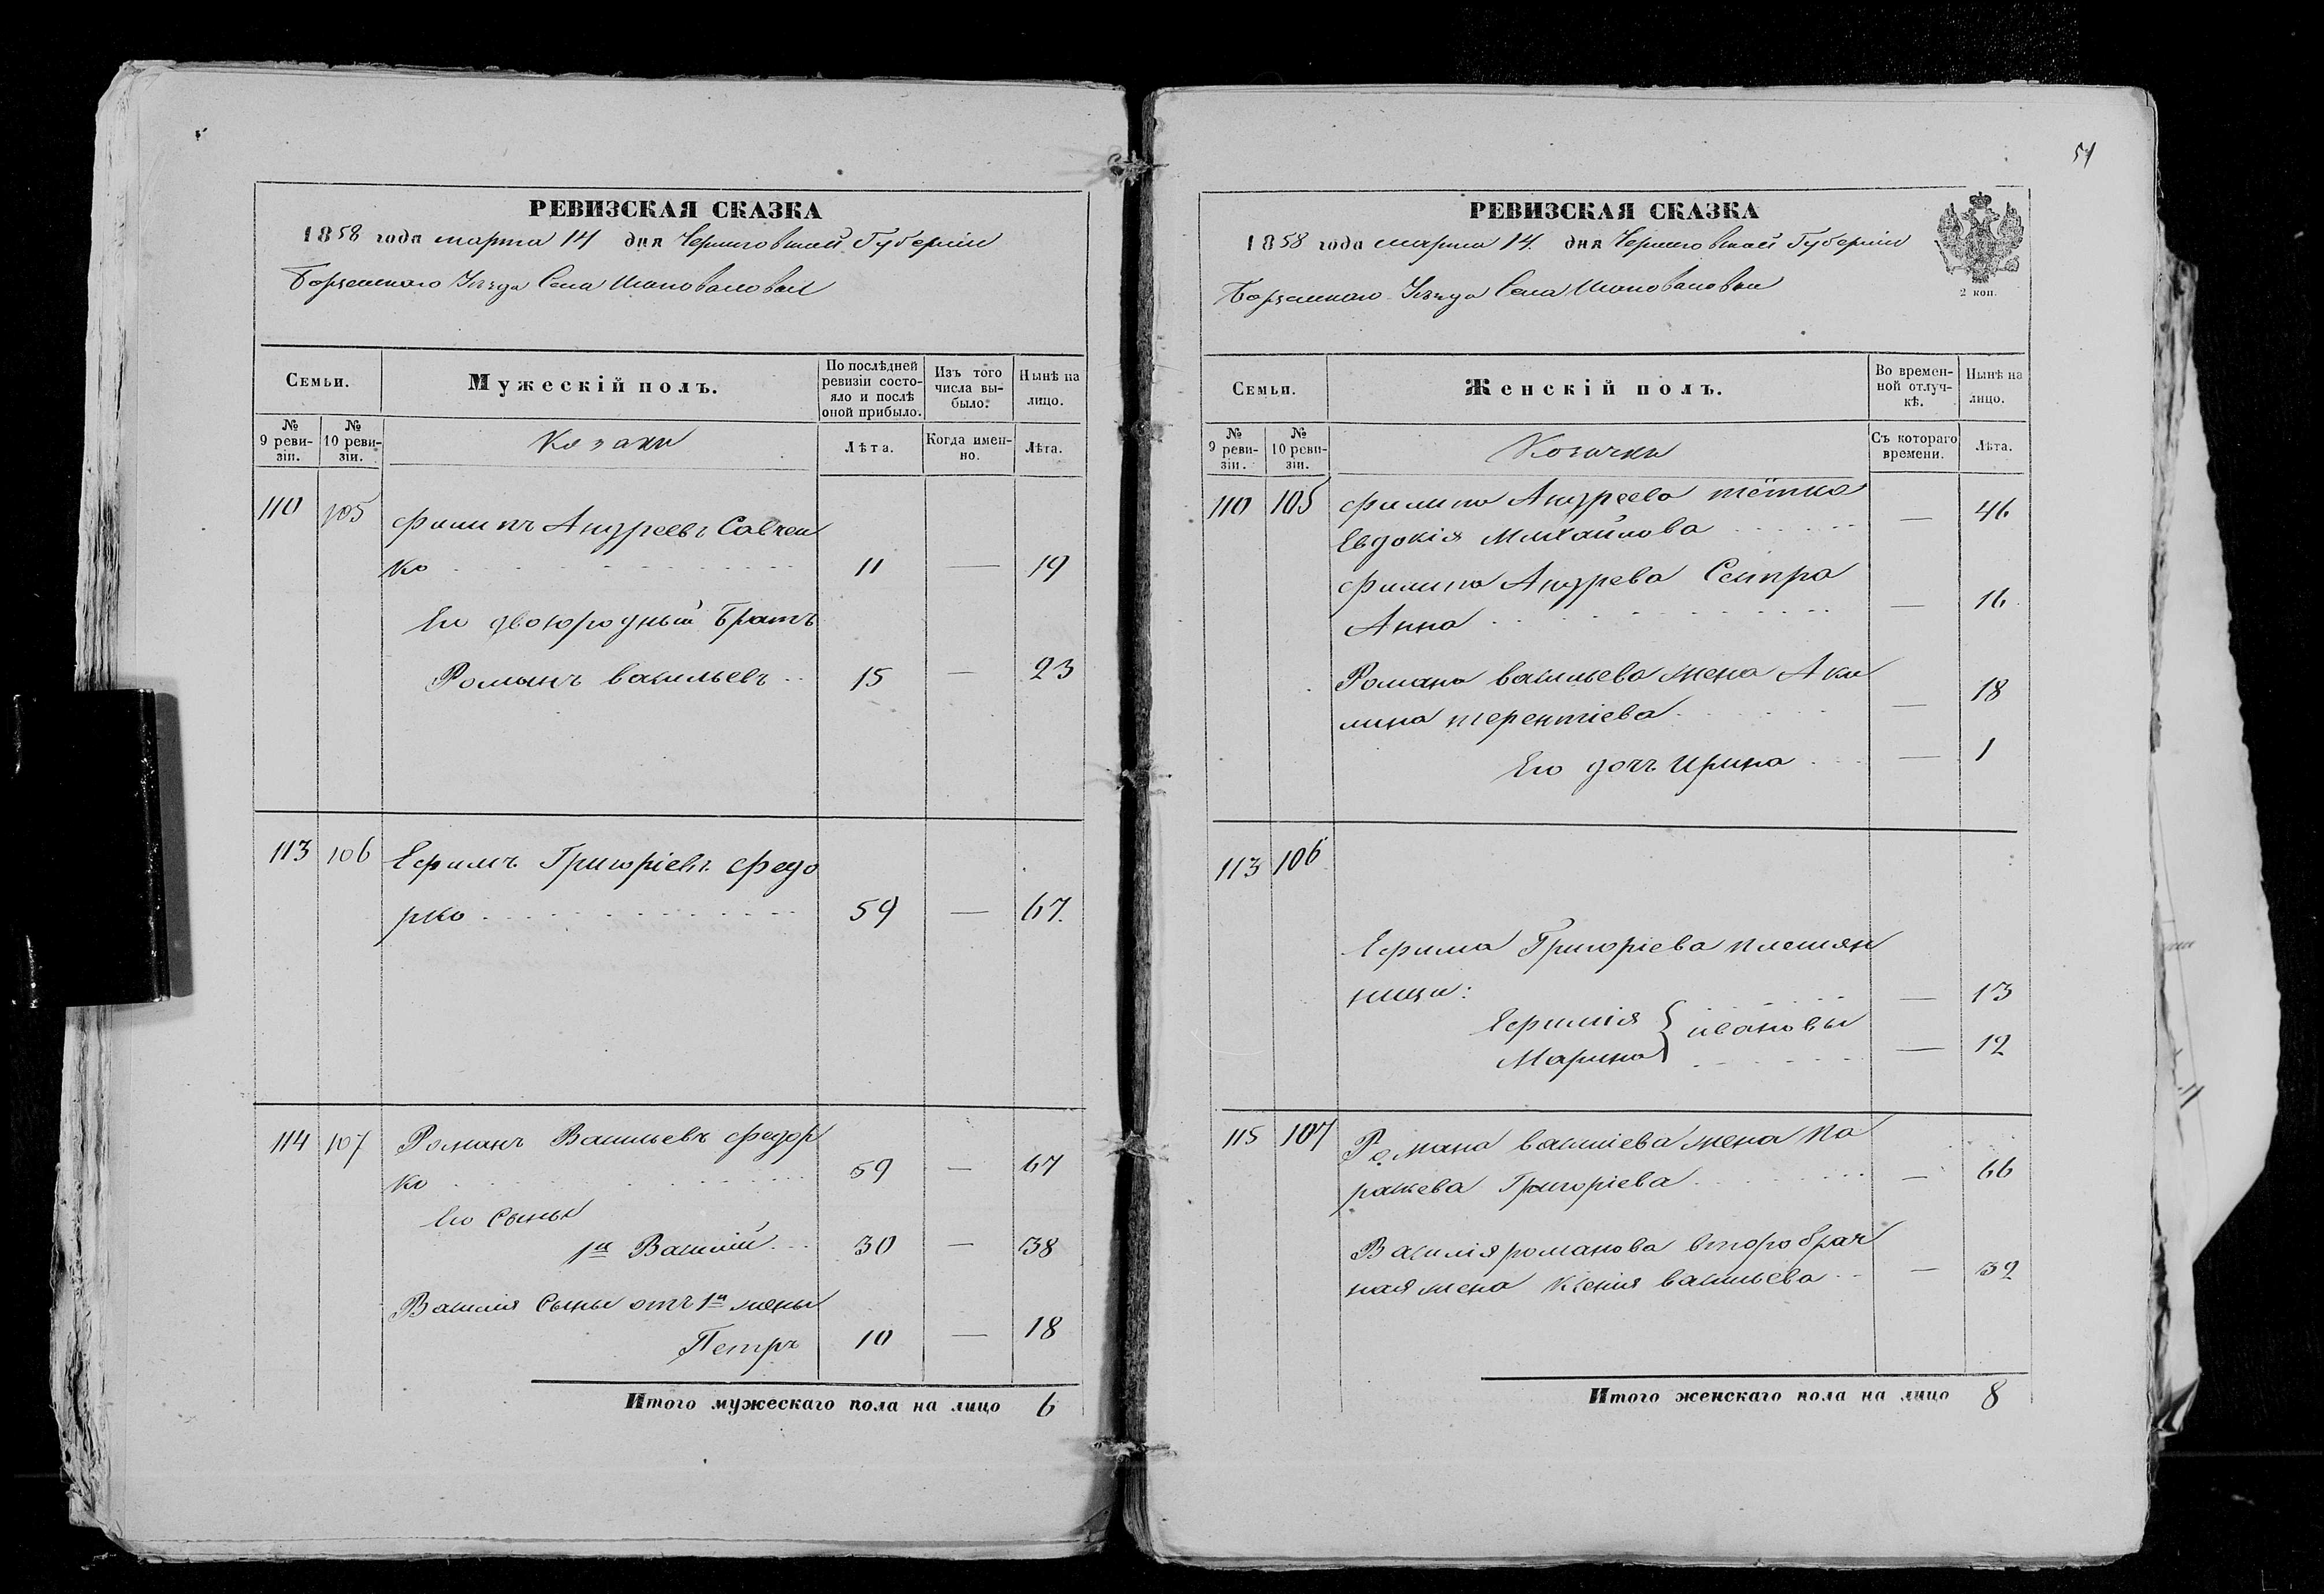 РЕВИЗСКАЯ СКАЗКА
1858 года марта 14 дня Черниговской Губерніи
Борзенского Уезда Села Шаповаловки
Семьи.
Мужескій полъ.
По послѣдней ревизіи состо-
яло и послѣ
оной прибыло.
Изъ того
числа вы-
было.
Нынѣ на
лицо.
№
9 реви-
зіи.
№
10 реви-
зіи.
Козаки
Лѣта.
Когда имен-
но.
Лѣта.
110 105 Филипъ Андреевъ Савчен
ко 11 — 19
Его двоюродный Братъ
Романъ васильевъ 15 — 23
113 106 Ефимъ Григоріевъ Федо
рко 59 — 67
114 107 Романъ Васильевъ Федор
ко 59 — 67
Его Сыны
1й Василій 30 — 38
Василія Сыны отъ 1й жены
Петръ 10 — 18
Итого мужескаго пола на лицо 6
51
РЕВИЗСКАЯ СКАЗКА
1858 года марта 14 дня Черниговской Губерніи
Борзенского Уезда Села Шаповаловки
2 коп.
Семьи.
Женскій полъ.
Во времен-
ной отлуч-
кѣ.
Нынѣ на
лицо.
№
9 реви-
зіи.
№
10 реви-
зіи.
Козачки
Съ котораго
времени.
Лѣта.
110 105 Филипа Андреева тётка
Евдокія Михайлова — 46
Филипа Андрева Сестра
Анна — 16
Романа васильева жена Аки
лина терентіева — 18
Его дочъ Ирина — 1
113 106
Ефима Григоріева племян
ници: — 13
Ефимія { ивановы
Марина — 12
115 107 Романа василіева жена Па
раскева Григоріева — 66
Василія романова второбрач
ная жена Ксенія васильева — 32
Итого женскаго пола на лицо 8